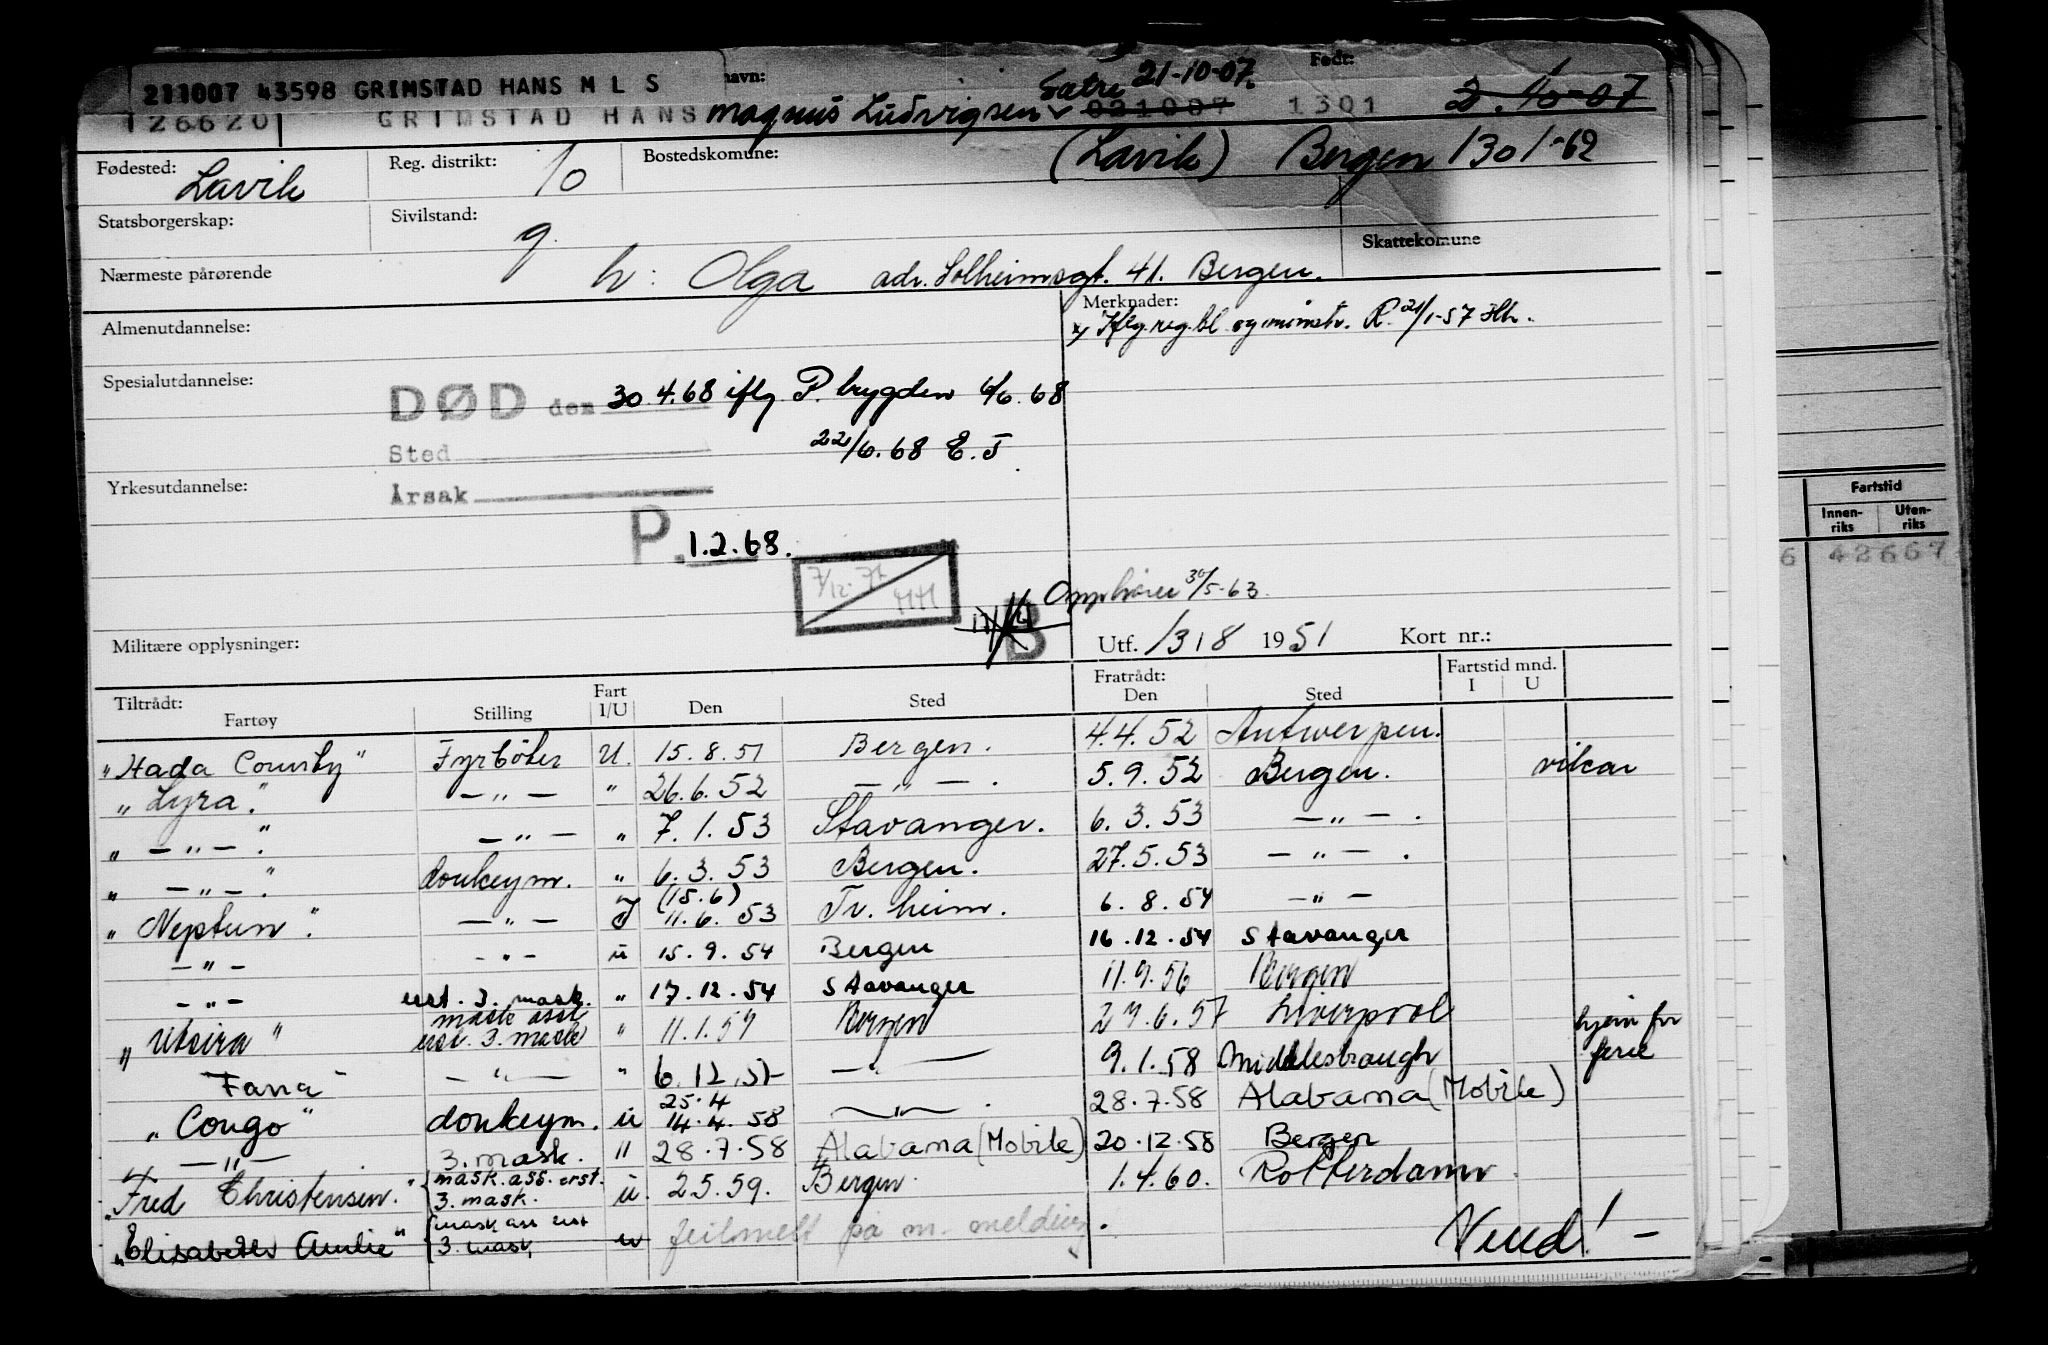 211007 43598 GRIMSTAD HANS M L S navn: Satre 21-10-07. Født:
126620 GRIMSTAD HANS Magnus Ludvigsen 021007 1301 2.10-07
Fødested: Lavik Reg. distrikt: 10 Bostedskomune: (Lavik) Bergen 1301-62
Statsborgerskap: Sivilstand: g. Skattekomune
Nærmeste pårørende h: Olga adr. Solheimsgt. 41. Bergen.
Almenutdannelse: Merknader:
x) Iflg. reg. bl. og mønstr. R. 21/1-57
Spesialutdannelse: DØD den 30.4.68 iflg P. trygden 6/6.68
Sted 22/6.68 E.J
Yrkesutdannelse: Årsak
P. 1.2.68.
7/12-71 HH
Opphører 30/5-63.
B
Militære opplysninger: Utf. 13/8 1951 Kort nr.:
Tiltrådt: Fratrådt: Fartstid mnd.
Fartøy Stilling Fart I/U Den Sted Den Sted I U
"Hada County" Fyrbøter U. 15.8.51 Bergen. 4.4.52 Antwerpen.
"Lyra". — " — " 26.6.52 — " — . 5.9.52 Bergen. vikar
" — " — ". — " — " 7.1.53 Stavanger. 6.3.53 — " — .
" — " — ". donkeym. " 6.3.53 Bergen. 27.5.53 — " — .
"Neptun". — " — I (15.6) 11.6.53 Tr.heim. 6.8.54 — " —
— " — — " — u 15.9.54 Bergen 16.12.54 Stavanger
— " — erst. 3. mask. " 17.12.54 Stavanger 11.9.56 Bergen
"Utsira" mask asst erst. 3. mask " 11.1.57 Bergen 29.6.57 Liverpool hjem for ferie
Fana" — " — " 6.12.57 — " — 9.1.58 Middlesbraugh
"Congo" donkeym. u 25.4 14.4.58 — " — . 28.7.58 Alabama (Mobile)
— " — 3. mask. " 28.7.58 Alabama (Mobile) 20.12.58 Bergen
"Fred Christensen." mask. ass. erst. 3. mask. u. 2.5.59. Bergen. 1.4.60. Rotterdam.
"Elisabeth Amlie" mask ass erst 3. mask, u feilmelt på m. melding.
Vend! —
Fartstid
Innen-riks Uten-riks
6 42667